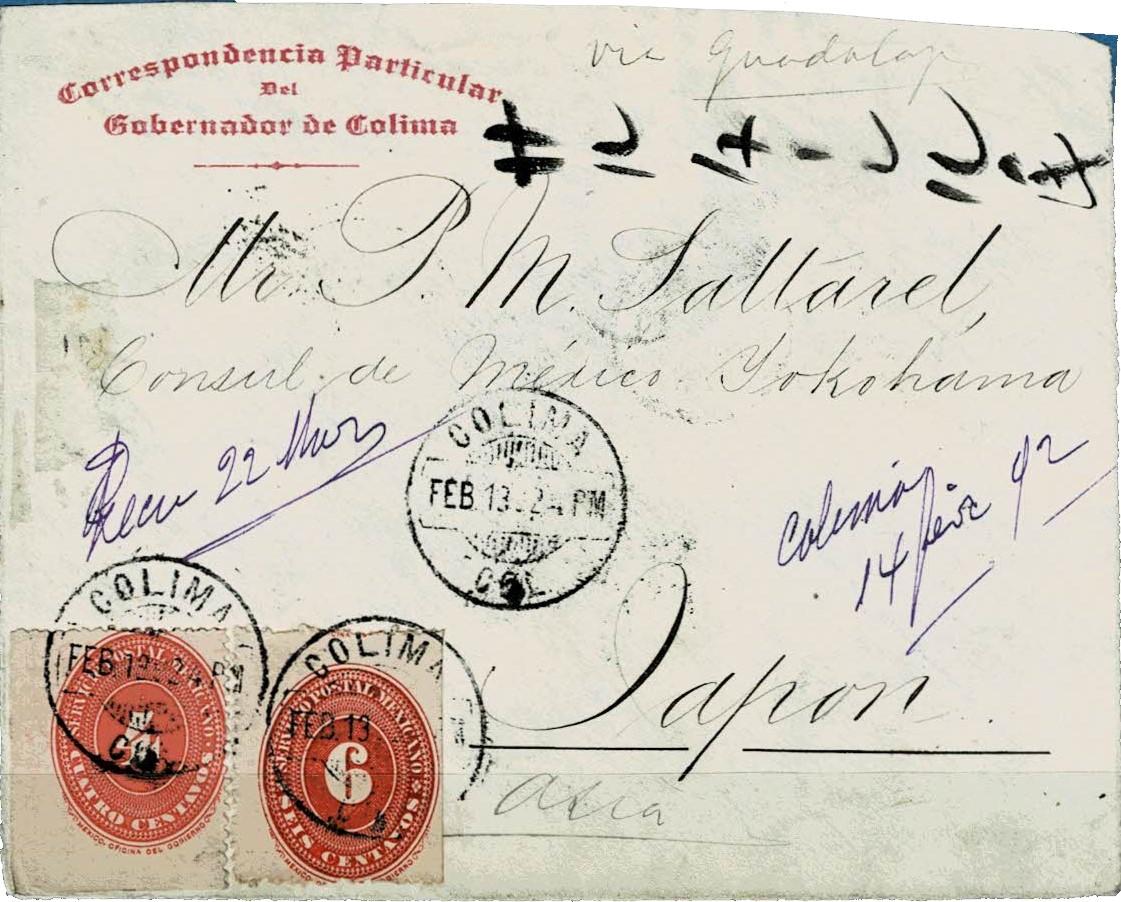 Correspondencia Particular
Del
Gobernador de Colima
via
Mr. P. M. Sattarel,
Consul de México Yokohama
22
Colima
14 92
COLIMA
FEB 13 92 4 PM
COL
Japon
Asia
COLIMA
FEB 13 92 4 PM
COL
SERVICIO POSTAL MEXICANO
4
CUATRO CENTAVOS
MEXICO. OFICINA DEL GOBIERNO
COLIMA
FEB 13
SERVICIO POSTAL MEXICANO
6
SEIS CENTAVOS